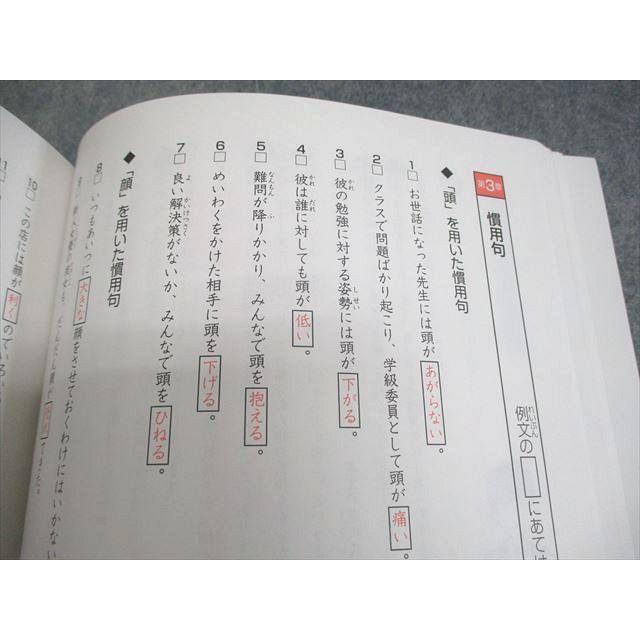 第3章 慣用句
例文の□にあては
◆「頭」を用いた慣用句
1□ お世話になった先生には頭があがらない。
2□ クラスで問題ばかり起こり、学級委員として頭が痛い。
3□ 彼の勉強に対する姿勢には頭が下がる。
4□ 彼は誰に対しても頭が低い。
5□ 難問が降りかかり、みんなで頭を抱える。
6□ めいわくをかけた相手に頭を下げる。
7□ 良い解決策がないか、みんなで頭をひねる。
◆「顔」を用いた慣用句
8□ いつもあいつに大きな顔をさせておくわけにはいかない
10□ この店には顔が利く